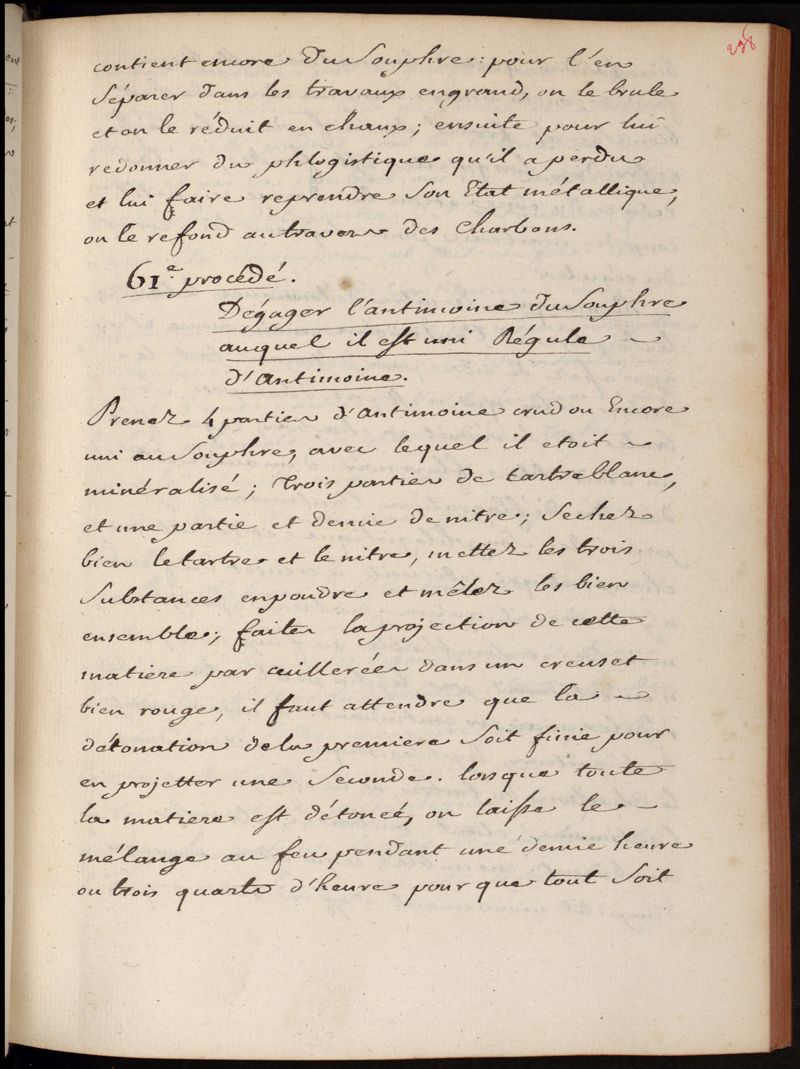 238
contient encore du Souphre : pour l'en
Séparer dans les travaux en grand, on le brule
et on le réduit en chaux; ensuite pour lui
redonner du phlogistique qu'il a perdu
et lui faire reprendre Son Etat métallique,
on le refond au travers des Charbons.
61e. procédé.
Dégager l'antimoine du Souphre
auquel il est uni Régule ~
d'antimoine.
Prenez 4 parties d'antimoine crud ou Encore
uni au Souphre, avec lequel il etoit ~
minéralisé; trois parties de tartre blanc,
et une partie et demie de nitre; Sechez
bien le tartre et le nitre, mettez les trois
Substances en poudre et mêlez les bien
ensemble; faites la projection de cette
matiere par cuillerées dans un creuset
bien rouge, il faut attendre que la ~
détonation de la premiere Soit finie pour
en projetter une Seconde. lorsque toute
la matiere est détonée, on laisse le ~
mélange au feu pendant une demie heure
ou trois quarts d'heure pour que tout Soit